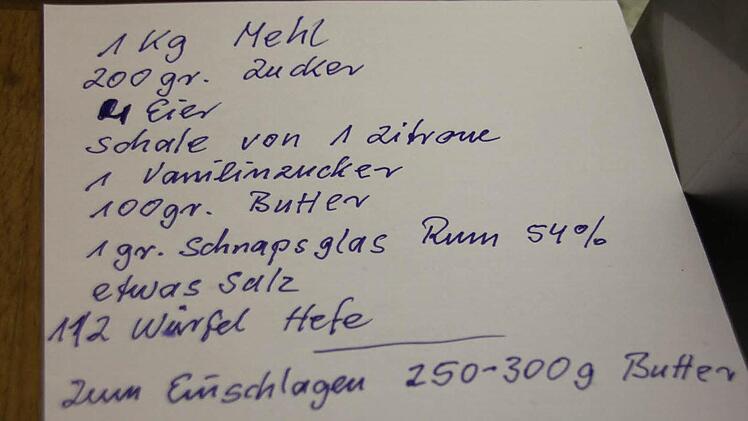 1 Kg Mehl
200gr. Zucker
4 Eier
Schale von 1 Zitrone
1 Vanilinzucker
100gr. Butter
1 gr. Schnapsglas Rum 54%
etwas Salz
1 1/2 Würfel Hefe
Zum Einschlagen 250-300g Butter